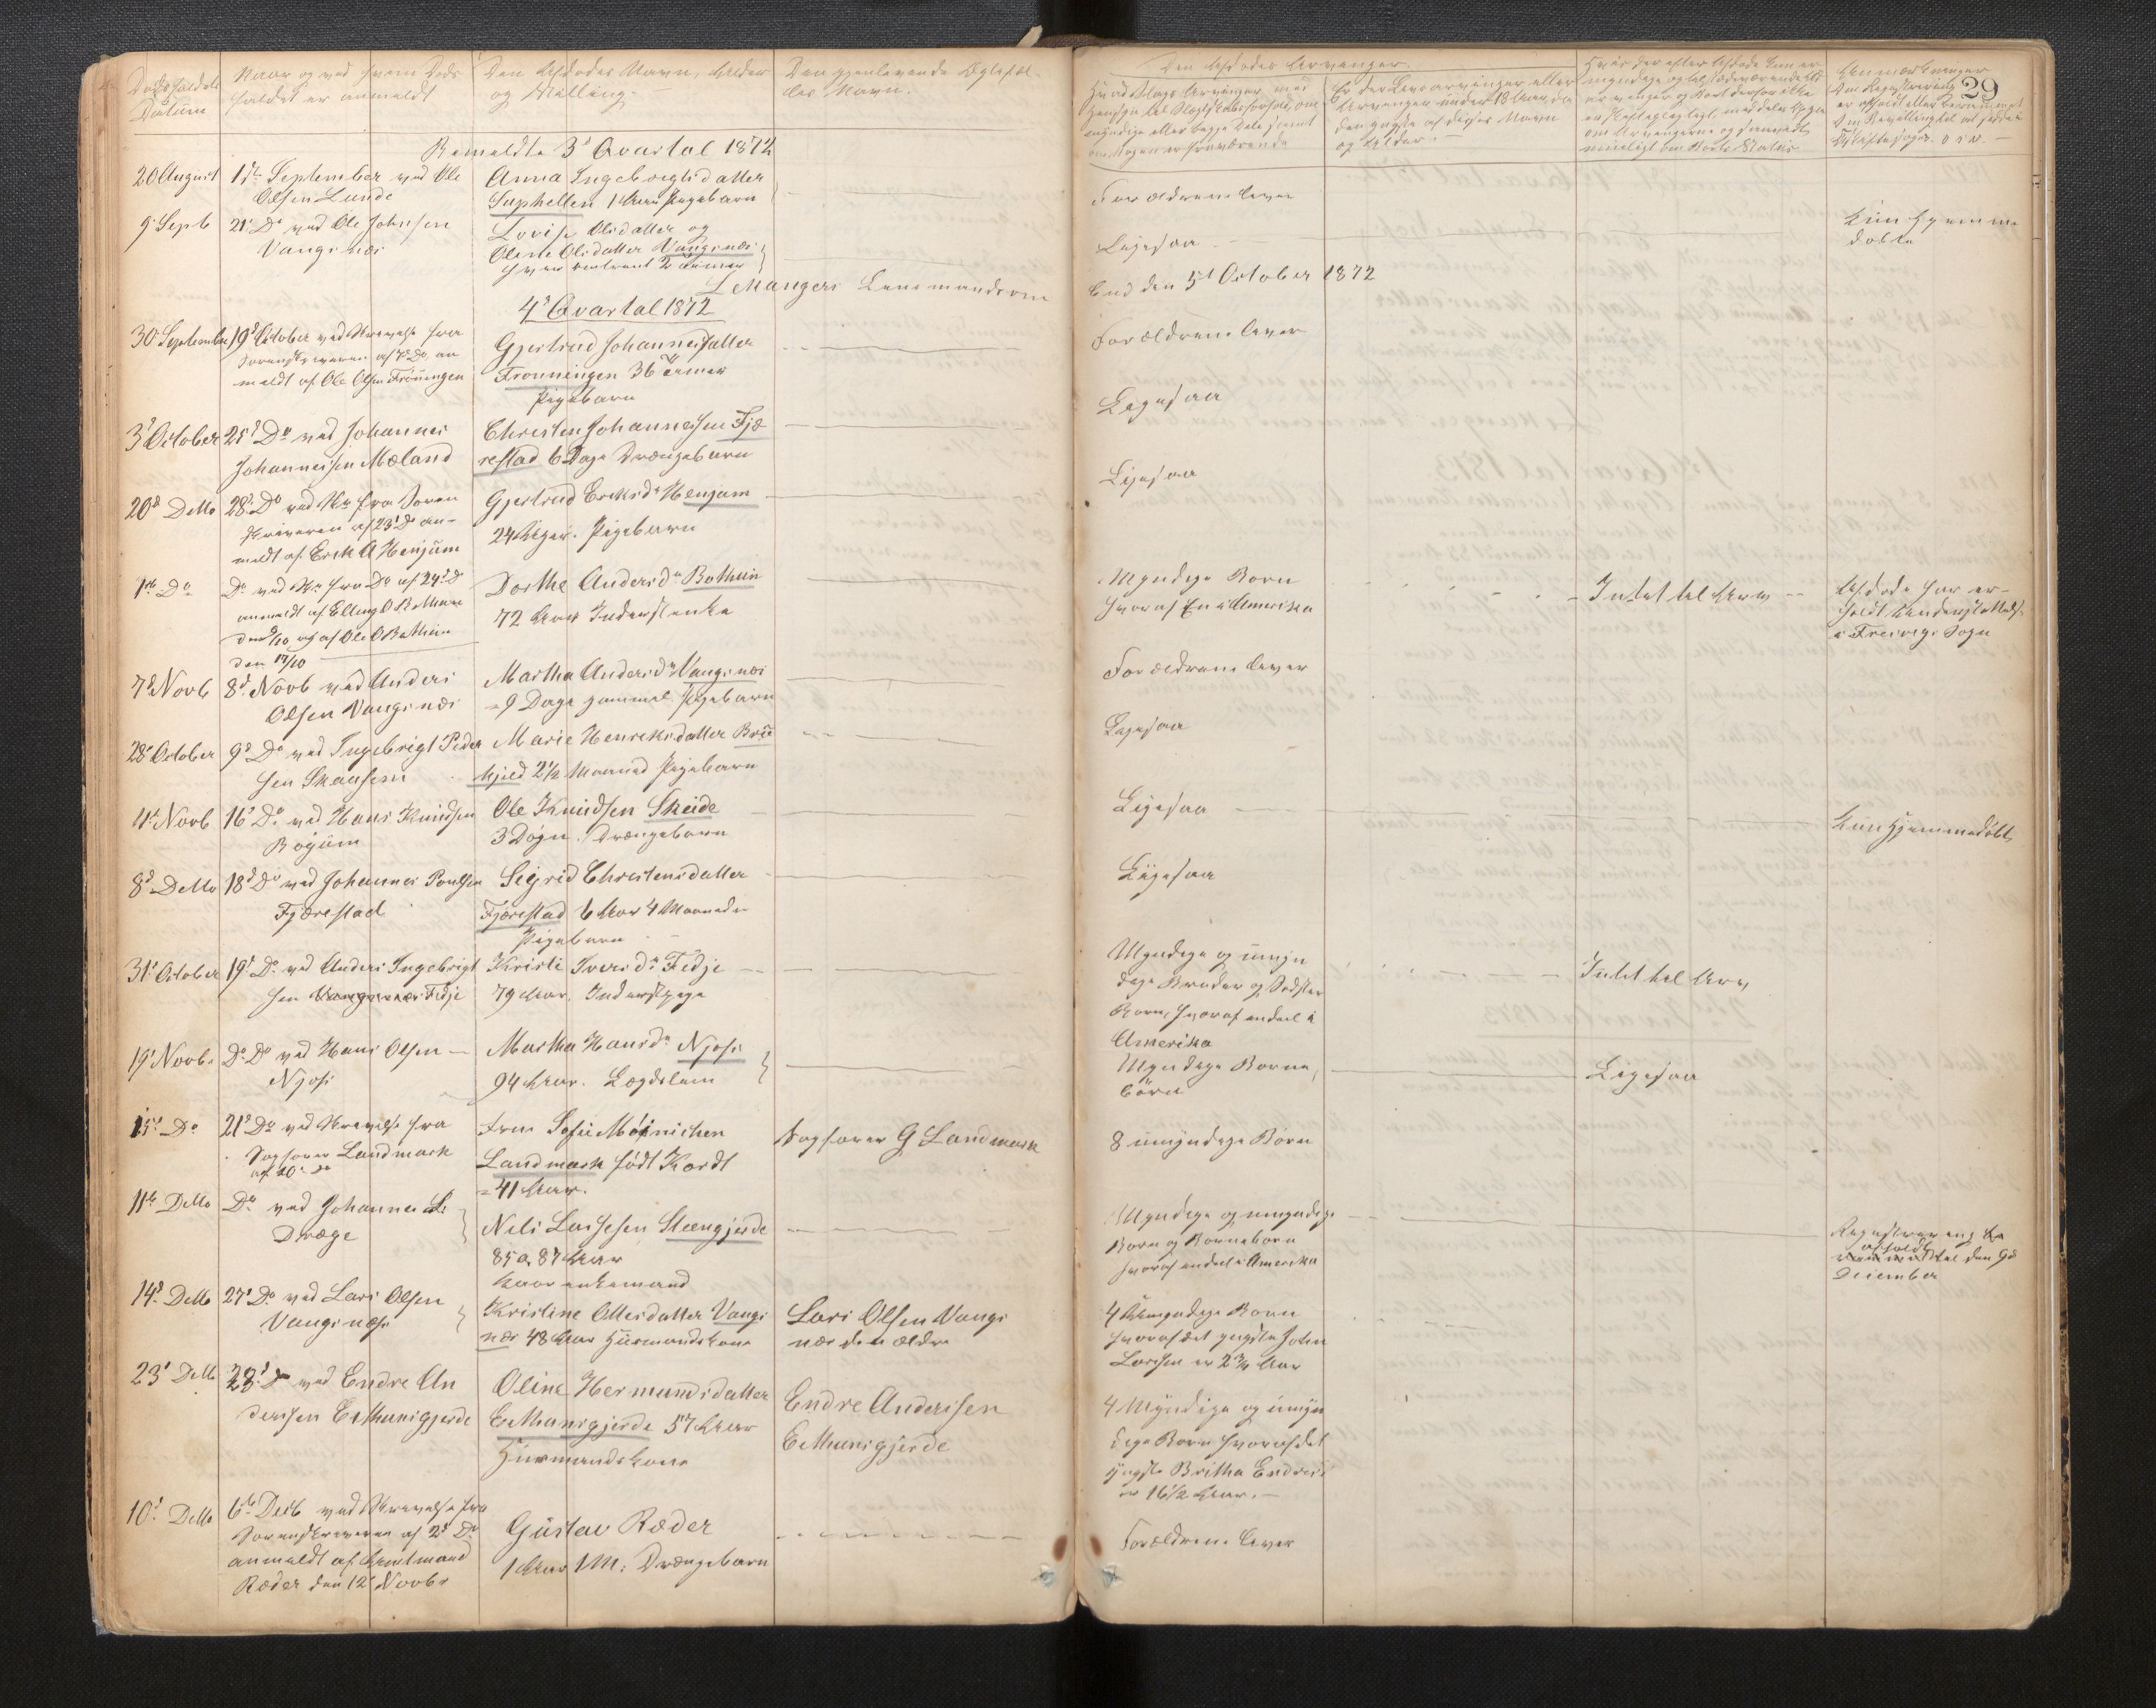 Dødsfaldets
Datum
Naar og ved hvem Døds
faldet er anmeldt
Den Afdødes Navn, Alder
og Stilling.
Den gjenlevende Ægtefæl-
les Navn.
Den Afdødes Arvinger.
Hvad Slags Arvinger med
Hensyn til Slægtskabsforhold, om
myndige eller begge Dele samt
om Nogen er fraværende
Er der Livsarvinger eller
Arvinger under 18 Aar, da
den yngste af disses Navn
og Alder.
Anmærkninger
29
Anmeldte 3d Qvartal 1872
20 August
1ste September ved Ole
Olsen Lunde
Anna Ingebrigtsdatter
Suphellen 1 Aar Pigebarn
Forældrene lever
9 Septb
21 Do ved Ole Johnsen
Vangsnæs
Lovise Olsdatter og
Oline Olsdatter Vangsnæs
hver omtrent 2 Timer
Ligesaa
Kun hjemme
døbte
L Mangers Lensmandsom
bud den 5t October 1872
4d Qvartal 1872
30 September
19d October ved Skrivelse fra
Sorenskriveren af 7 Do an
meldt af Ole Olsen Frönningen
Gjertrud Johannesdatter
Fronningen 36 Timer
Pigebarn
Forældrene lever
3d October
25d Do ved Johannes
Johannessen Mæland
Christen Johannessen Fjæ
restad 6 Dage Drængebarn
Ligesaa
20d Detto
28d Do ved Sk. fra Soren
skriveren af 23d Do an-
meldt af Erik A Henjum
Gjertrud Eriksdr Henjum
24 Uger. Pigebarn
Ligesaa
1ste Do
Do ved Sk. fra Do af 24d Do
anmeldt af Elling O Bothun
den 9/10 og af Ole O Bothun
den 17/10
Dorthe Andersdr Bothun
72 Aar Inderstenke
Myndige Børn
hvoraf En i Amerika
Intet til Arv
Afdøde har er-
holdt Understøttelse
i Freisvigs Sogn
7d Novb
8d Novb ved Anders
Olsen Vangsnæs
Martha Andersdr Vangsnæs
9 Dage gammel Pigebarn
Forældrene lever
28d October
9d Do ved Ingebrigt Peder
sen Skaasem
Marie Henriksdatter Brü
hjeld 2 1/2 Maaned Pigebarn
Ligesaa
4d Novb
16d Do ved Hans Knudsen
Bøyum
Ole Knudsen Skeide
3 Døgn. Drængebarn
Ligesaa
Kun hjemmedøbt
8d Detto
18d Do ved Johannes Poulsen
Fjærestad
Sigrid Christensdatter
Fjærestad 6 Aar 4 Maaneder
Pigebarn
Ligesaa
31d October
19d Do ved Anders Ingebrigt
sen Vangsnæs Fedje
Kristi Iversdr Fedje
79 Aar. Inderstpige
Myndige og umyn
dige Brøder og Søster
Børn, hvoraf endeel i
Amerika
Intet til Arv
19d Novbr
Do Do ved Hans Olsen
Njøs
Martha Hansdr Njøs
94 Aar. Lægdslem
Myndige Børne
børn
Ligesaa
15d Do
21d Do ved Skrivelse fra
Sagfører Landmark
af 20d do
Fru Sofie Møinichen
Landmark født Kordt
41 Aar.
Sagfører G Landmark
8 umyndige Børn
11te Detto
Do ved Johannes L.
Dræge
Nils Larssen Stængjerde
85 a 87 Aar
Kaarenkemand
Myndige og umyndige
Børn og Børnebørn
hvoraf endeel i Amerika
Registrering
afholdt
den 9d
December
14d Detto
27d Do ved Lars Olsen
Vangsnæs
Kristine Ottesdatter Vangs
næs 48 Aar Husmandskone
Lars Olsen Vangs
næs den ældre
4 Umyndige Børn
hvoraf det yngste John
Larssen er 2 3/4 Aar
23d Detto
28d Do ved Endre An
derssen Eithunsgjerde
Oline Hermundsdatter
Eithunsgjerde 57 Aar
Husmandskone
Endre Anderssen
Eithunsgjerde
4 Myndige og umyn
dige Børn hvoraf det
yngste Britha Endresd
er 16 1/2 Aar.
10d Detto
6te Decb ved Skrivelse fra
Sorenskriveren af 2d Do
anmeldt af Amtmand
Ræder den 12d Novbr
Gustav Ræder
1 Aar 1 M: Drængebarn
Forældrene lever